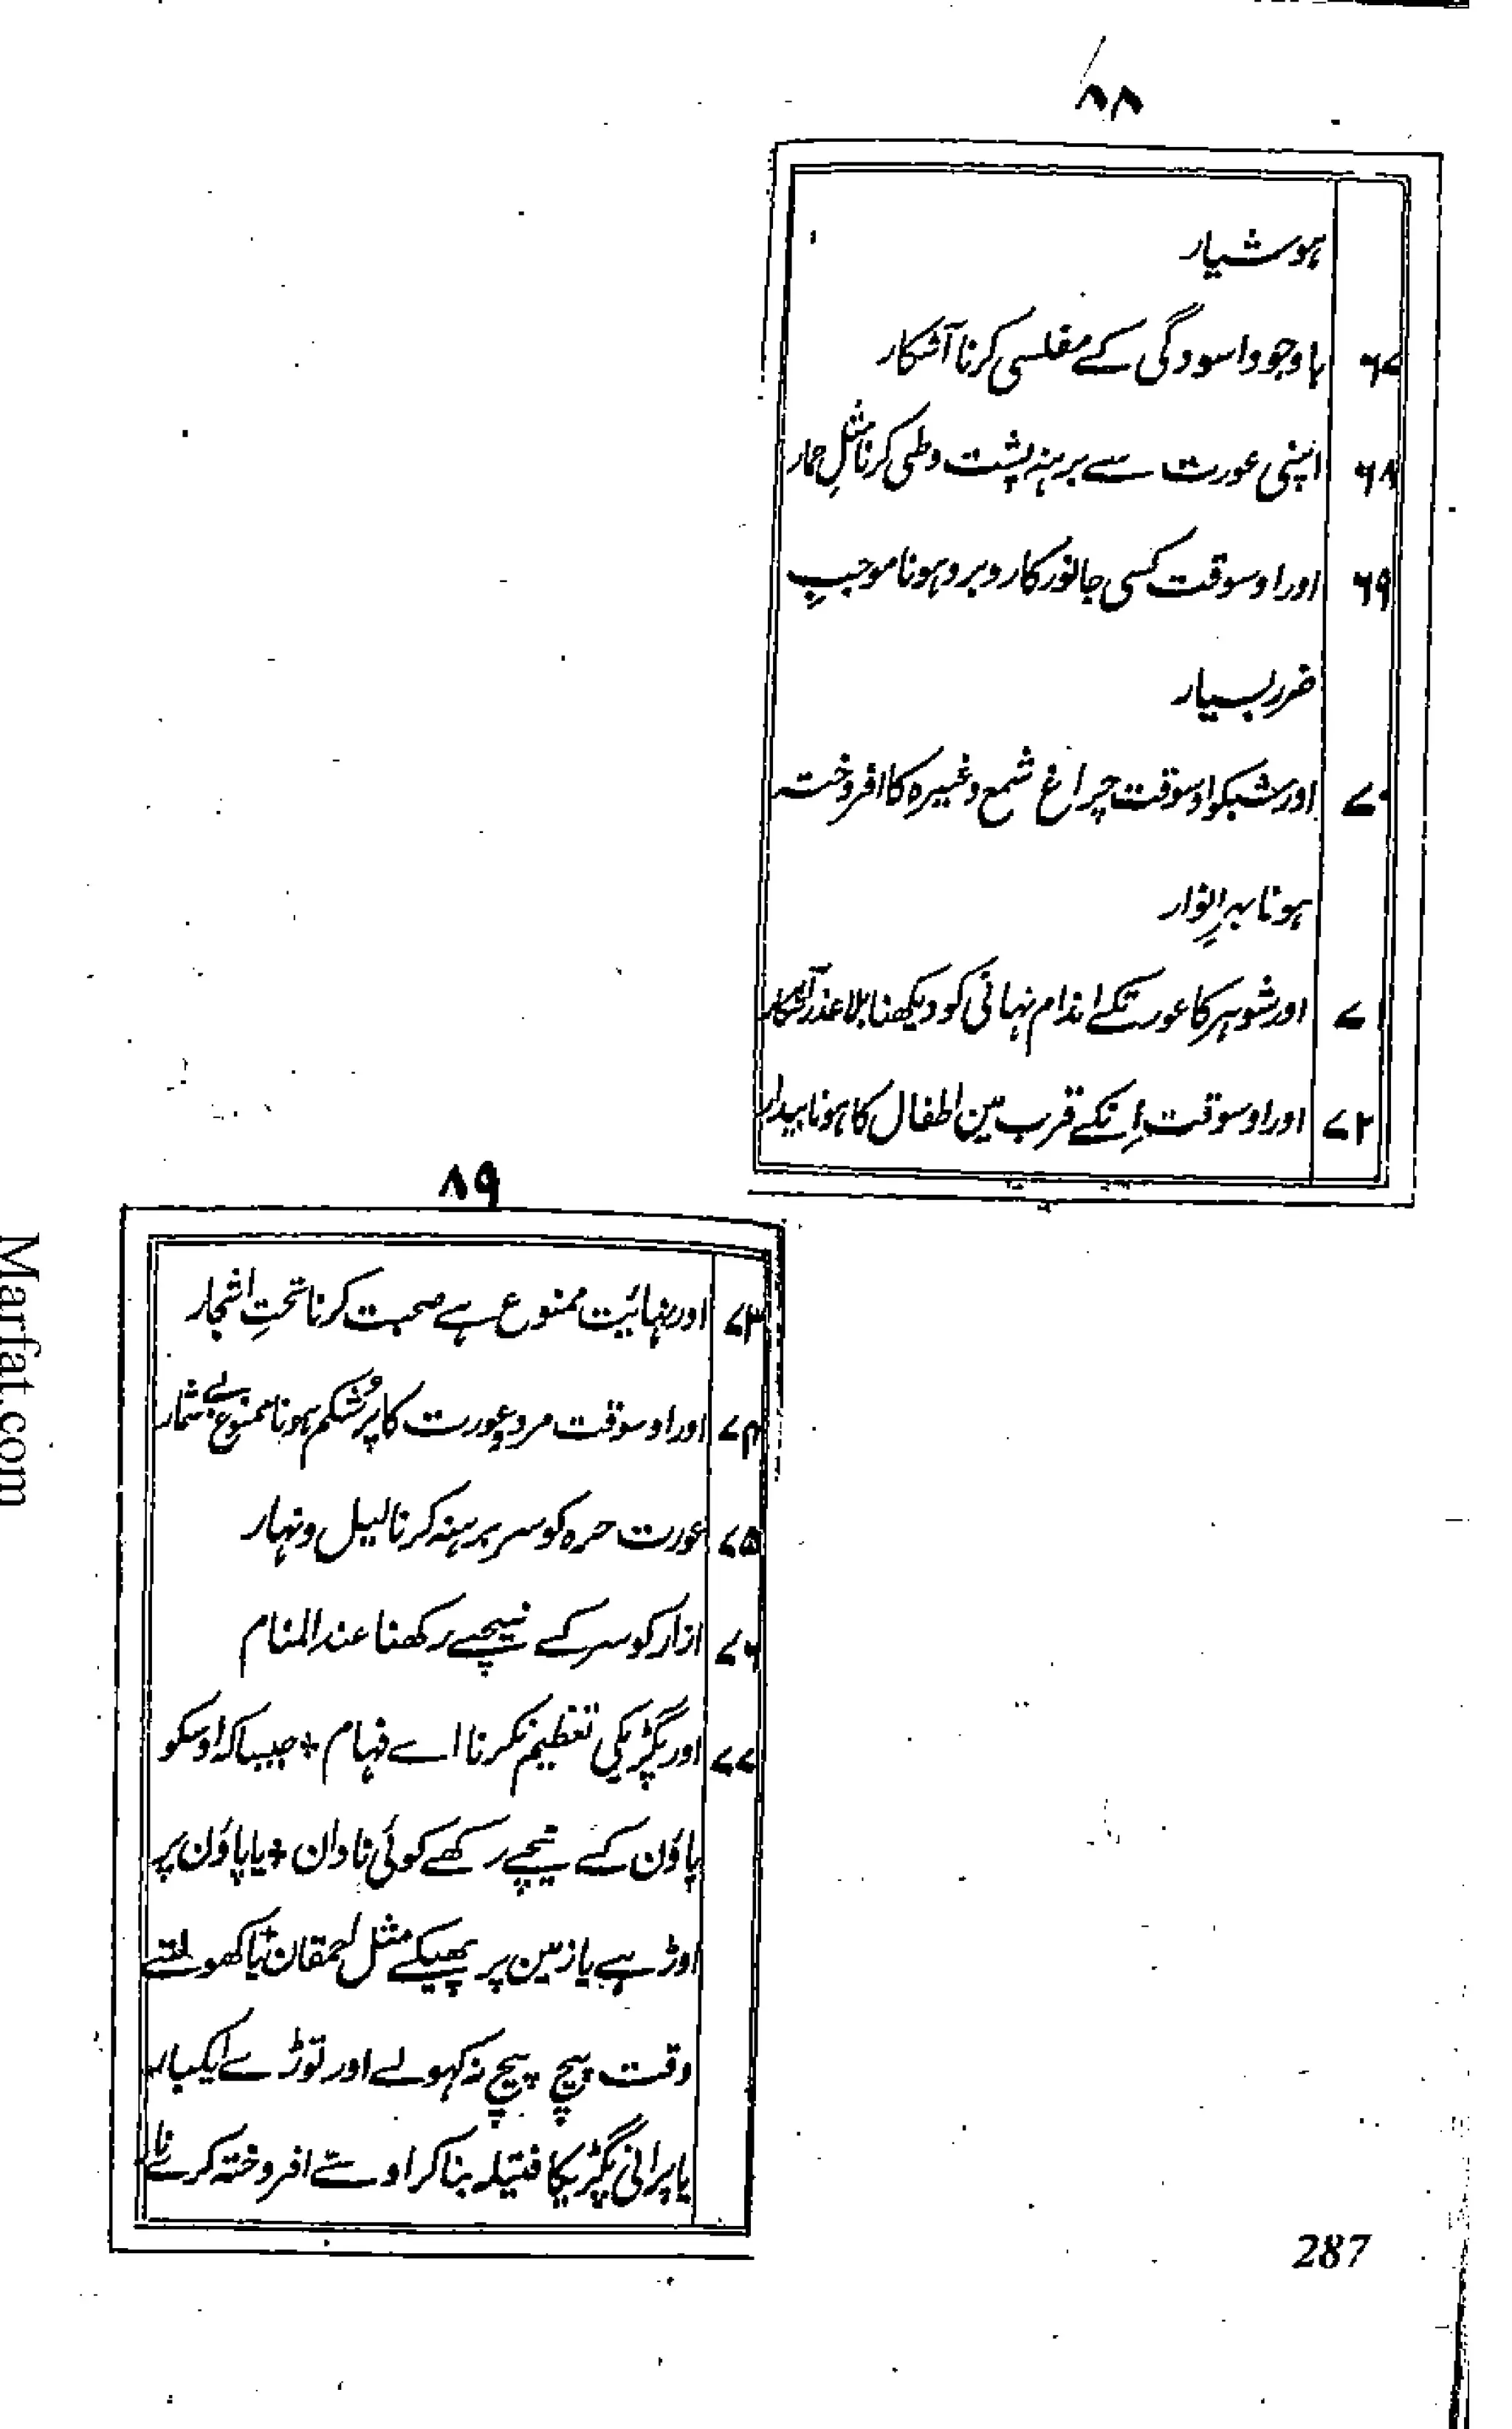 ۸۸
ہوشیار
۶۷ باوجود اسودگی کے مفلسی کرنا آشکار
۶۸ اپنی عورت سے برہنہ پشت وطی کرنا مثلِ حمار
۶۹ اور اوسوقت کسی جانور کا روبرو ہونا موجبِ
ضرر بسیار
۷۰ اور شبکو اوسوقت چراغ شمع وغیرہ کا افروختہ
ہونا بہرِ انوار
۷۱ اور شوہر کا عورتکے اندام نہانی کو دیکھنا بلا عذر آشکار
۷۲ اور اوسوقت اِنکے قرب مین اطفال کا ہونا بیدار
۸۹
۷۳ اور نہائیت ممنوع ہے صحبت کرنا تحتِ اشجار
۷۴ اور اوسوقت مرد و عورت کا پُر شکم ہونا ممنوع بے شمار
۷۵ عورت حرہ کو سر برہنہ کرنا لیل و نہار
۷۶ ازار کو سر کے نیچے رکھنا عند المنام
۷۷ اور پگڑیکی تعظیم نکرنا اے فہام + جیسا کہ اوسکو
پاؤن کے نیچے رکھے کوئی نادان + یا پاؤن پر
اوڑہے یا زمین پر پھیکے مثل احمقان + یا کھولتے
وقت پیچ پیچ نہ کہولے اور توڑے ایکبار
یا پرانی پگڑیکا فتیلہ بنا کر اوسے افروختہ کرے
287
Marfat.com